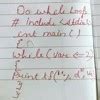 Do while Loop
# Include <stdio.h>
int main ( )
{
while (Var <= 2)
{
Printf ("
}
}